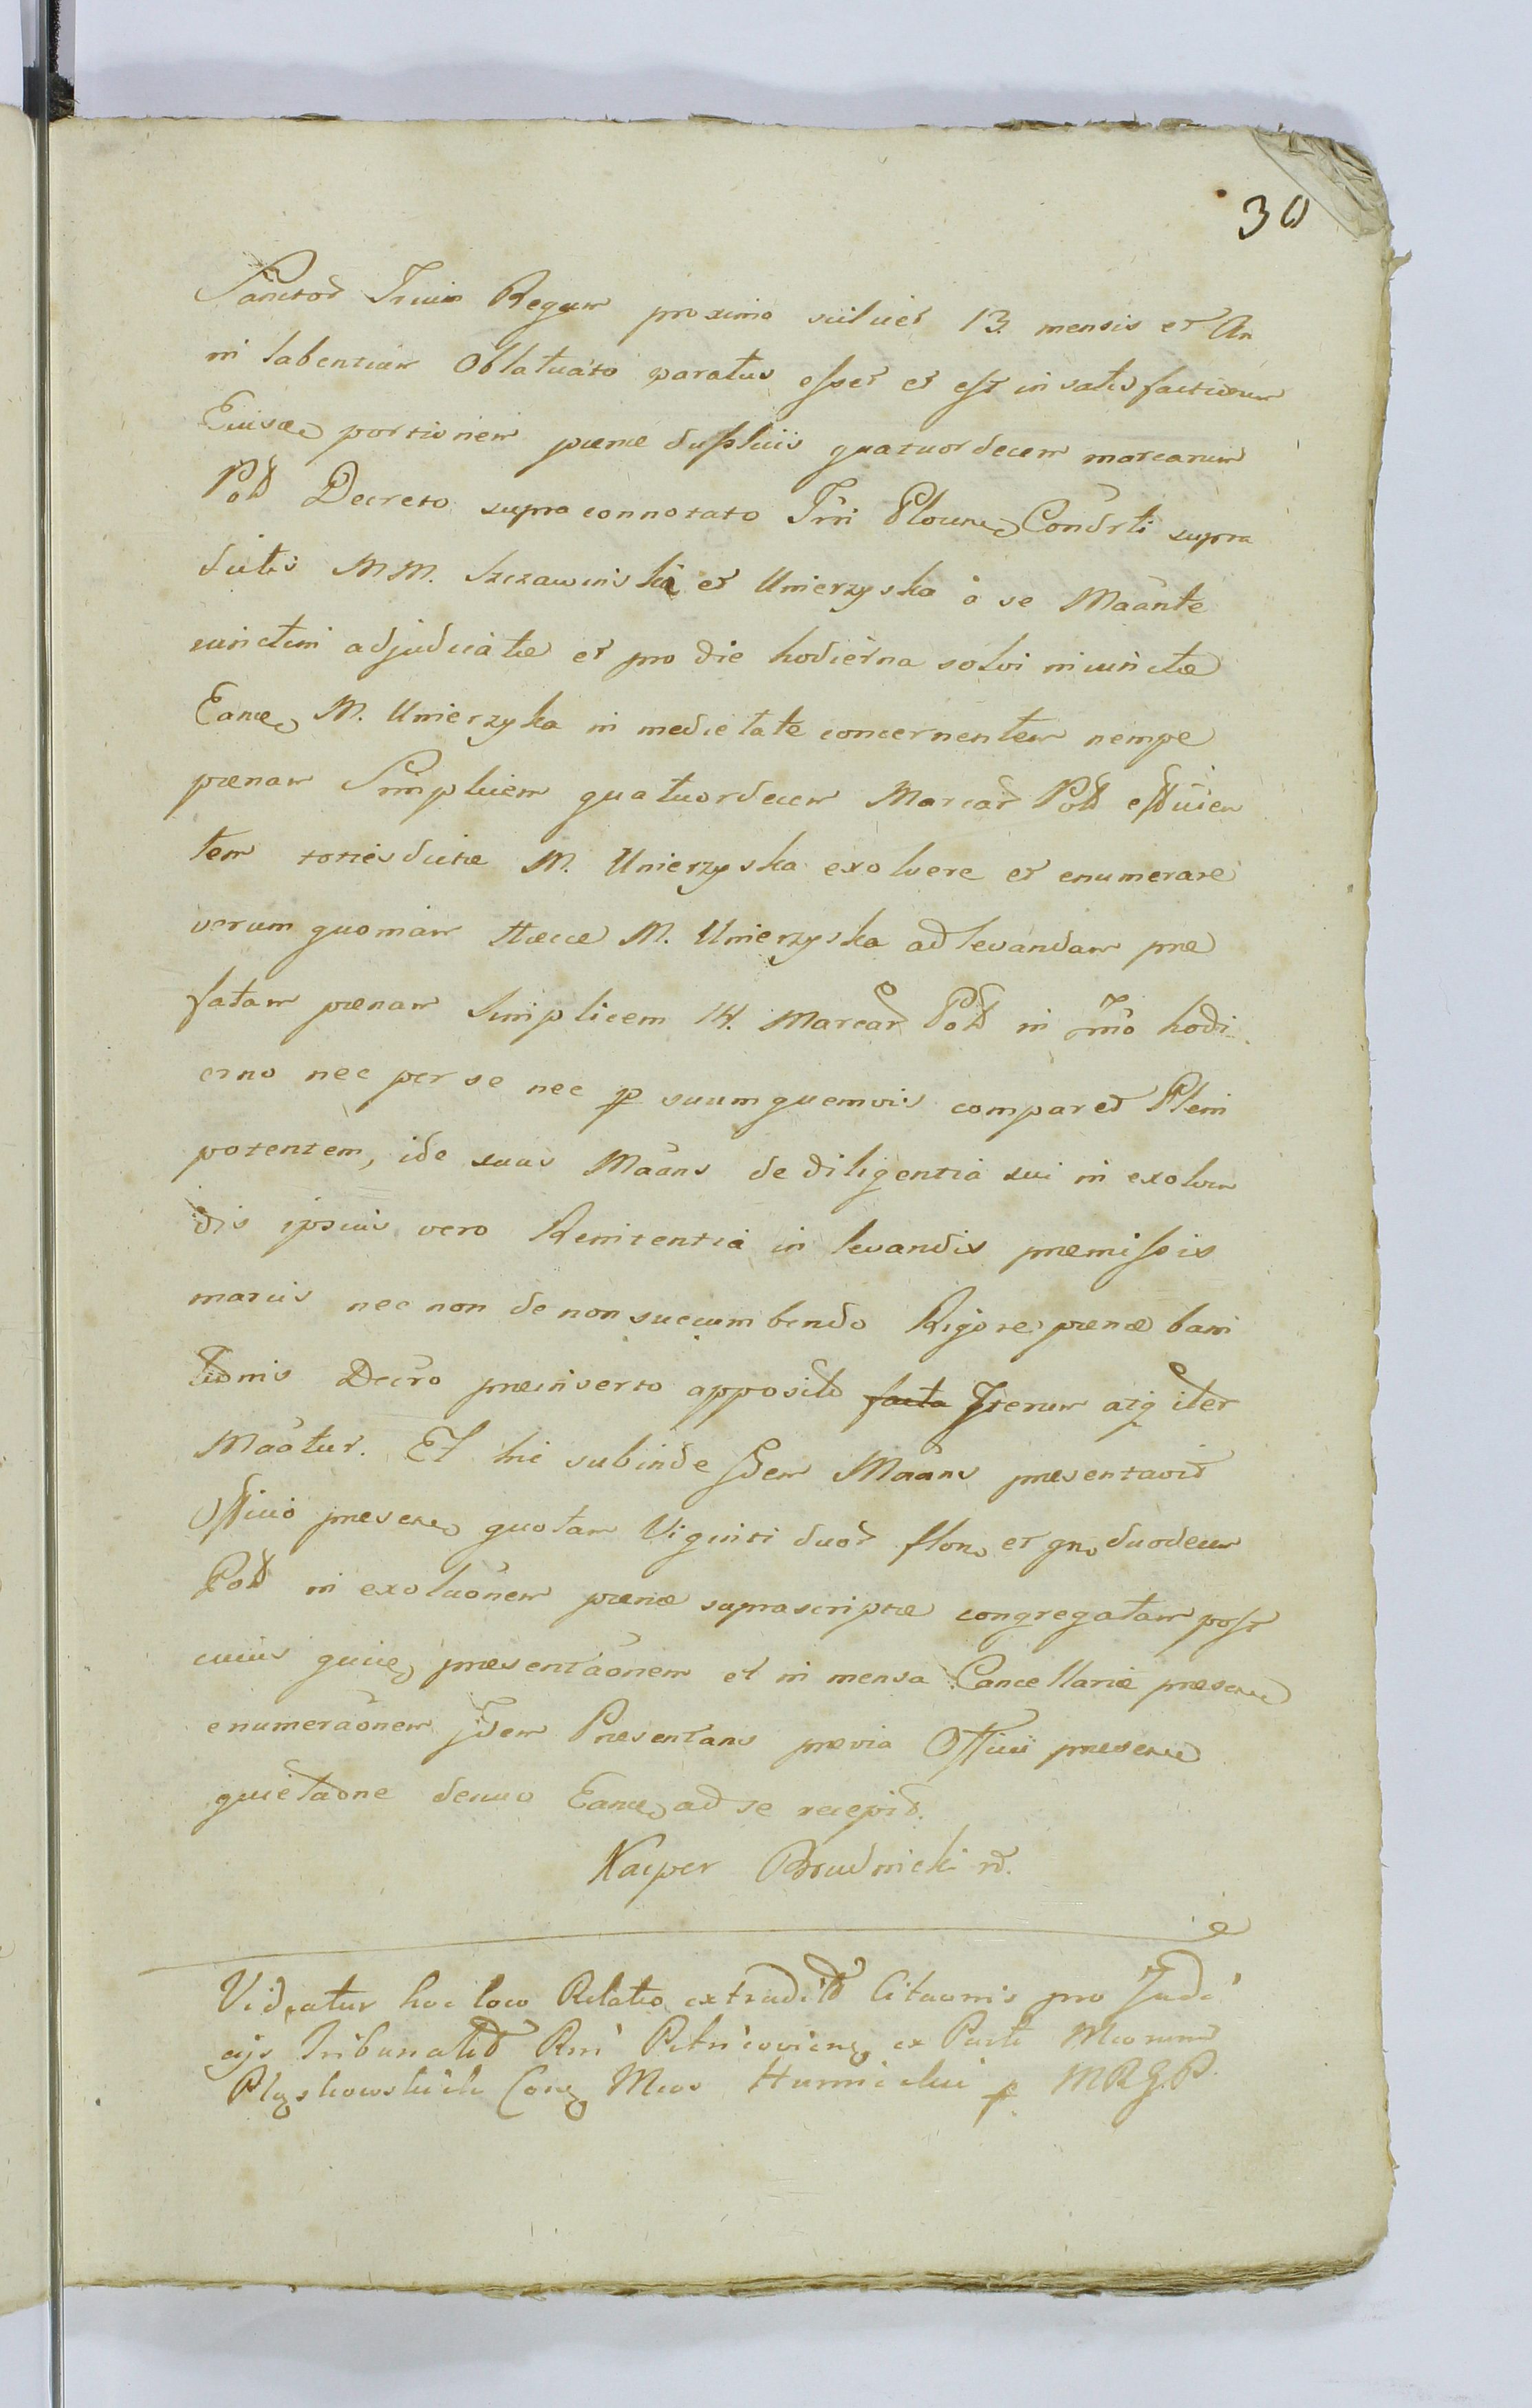 30
Sanctor Trium Regum proximo scilicet 13. mensis et An
ni labentium Oblatuato paratus esset et est in satisfactionem
Eiusdem portionem pænæ duplicis quatuordecem marcarum
Pol Decreto supra connotato Trri Plocen Condrti supra
dictis MM. Szczawinski et Umierzyska à se Maante
cunctim adjudicatæ et pro die hodierna solvi iniunctæ
Eance M. Umierzyska in medietate concernentem nempe
pænam Simplicem quatuordecem Marcar Pol efficien
tem toties dictæ M. Umierzyska exolvere et enumerare
verum quoniam Hæcce M. Umierzyska ad levandam præ
fatam pænam simplicem 14. Marcar Pol in Trno hodi
erno nec per se nec p suum quemvis comparet Pleni
potentem, ide suus Maans de diligentia sui in exolven
dis ipsius vero Renitentia in levandis præmissis
marcis nec non de non succumbendo Rigore pænæ bani
tionis Decro præinserto apposito facta Iterum atq iter
Maatur. Et hic subinde Idem Maans præsentavit
Officio præsen quotam Viginti duor flon et gr duodecem
Pol in exolucionem pænæ suprascriptæ congregatam post
cuius quidem præsentaonem et in mensa Cancellariæ præsen
enumeraonem Idem Præsentans prævia Officii præsen
quietaone denuo Eance ad se recepit.
Kacper Brudnicki
Videatur hoc loco Relatio extradit Citaonis pro Judi
cijs Tribunalit Rni Petricovien ex Parte Meorum
Plyskowskich Cong Meos Humiecki p MRGP.